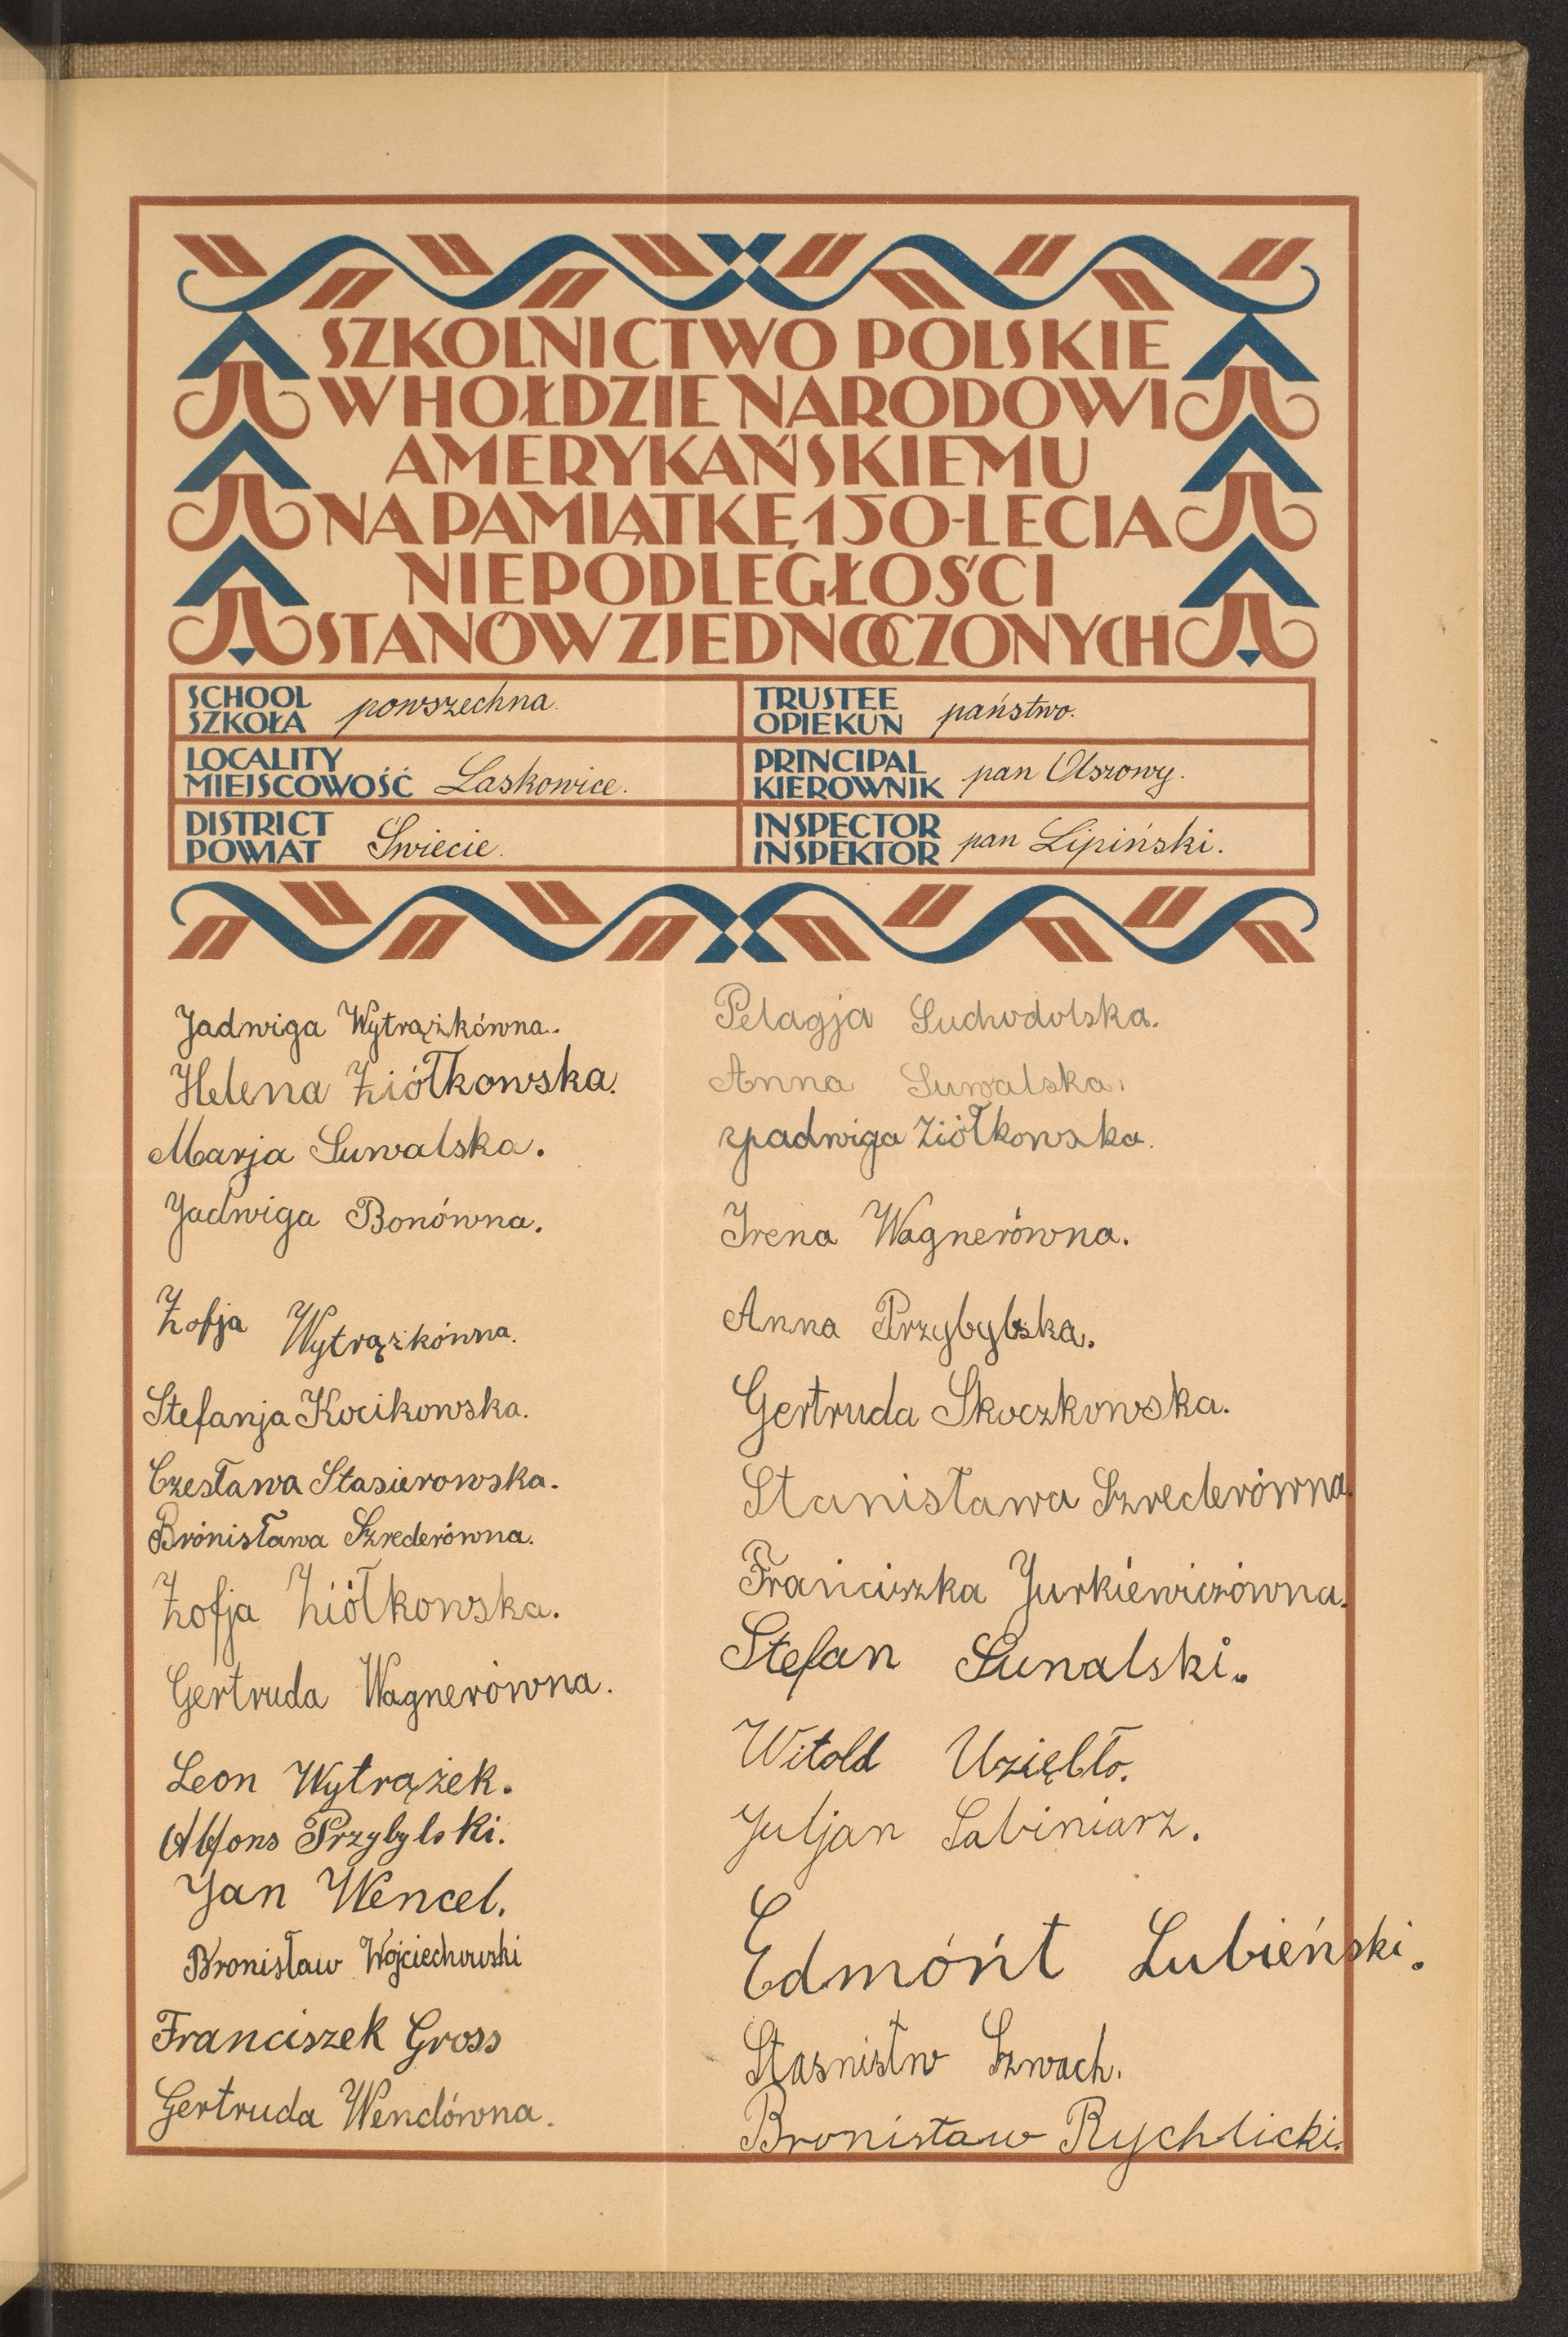 SZKOLNICTWO POLSKIE
W HOŁDZIE NARODOWI
AMERYKAŃSKIEMU
NA PAMIĄTKĘ 150-LECIA
NIEPODLEGŁOŚCI
STANÓW ZJEDNOCZONYCH
SCHOOL
SZKOŁA powszechna.
TRUSTEE
OPIEKUN państwo.
LOCALITY
MIEJSCOWOŚĆ Laskowice.
PRINCIPAL
KIEROWNIK pan Olszowy.
DISTRICT
POWIAT Świecie.
INSPECTOR
INSPEKTOR pan Lipiński.
Jadwiga Wytrążkówna.
Helena Ziółkowska.
Marja Suwalska.
Jadwiga Bonówna.
Zofja Wytrążkówna.
Stefanja Kocikowska.
Czesława Stasierowska.
Brónisława Szrederówna.
Zofja Ziółkowska.
Gertruda Wagnerówna.
Leon Wytrążek.
Alfons Przybylski.
Jan Wencel.
Bronisław Wojciechowski
Franciszek Gross
Gertruda Wendówna.
Pelagja Suchodolska.
Anna Suwalska.
Jadwiga Ziółkowska.
Irena Wagnerówna.
Anna Przybylska.
Gertruda Skoczkowska.
Stanisława Szrederówna.
Franciszka Jurkiewiczówna.
Stefan Sunalski.
Witold Uziębło.
Juljan Labiniarz.
Edmónt Lubieński.
Stasnistw Szwach.
Bronisław Rychlicki.